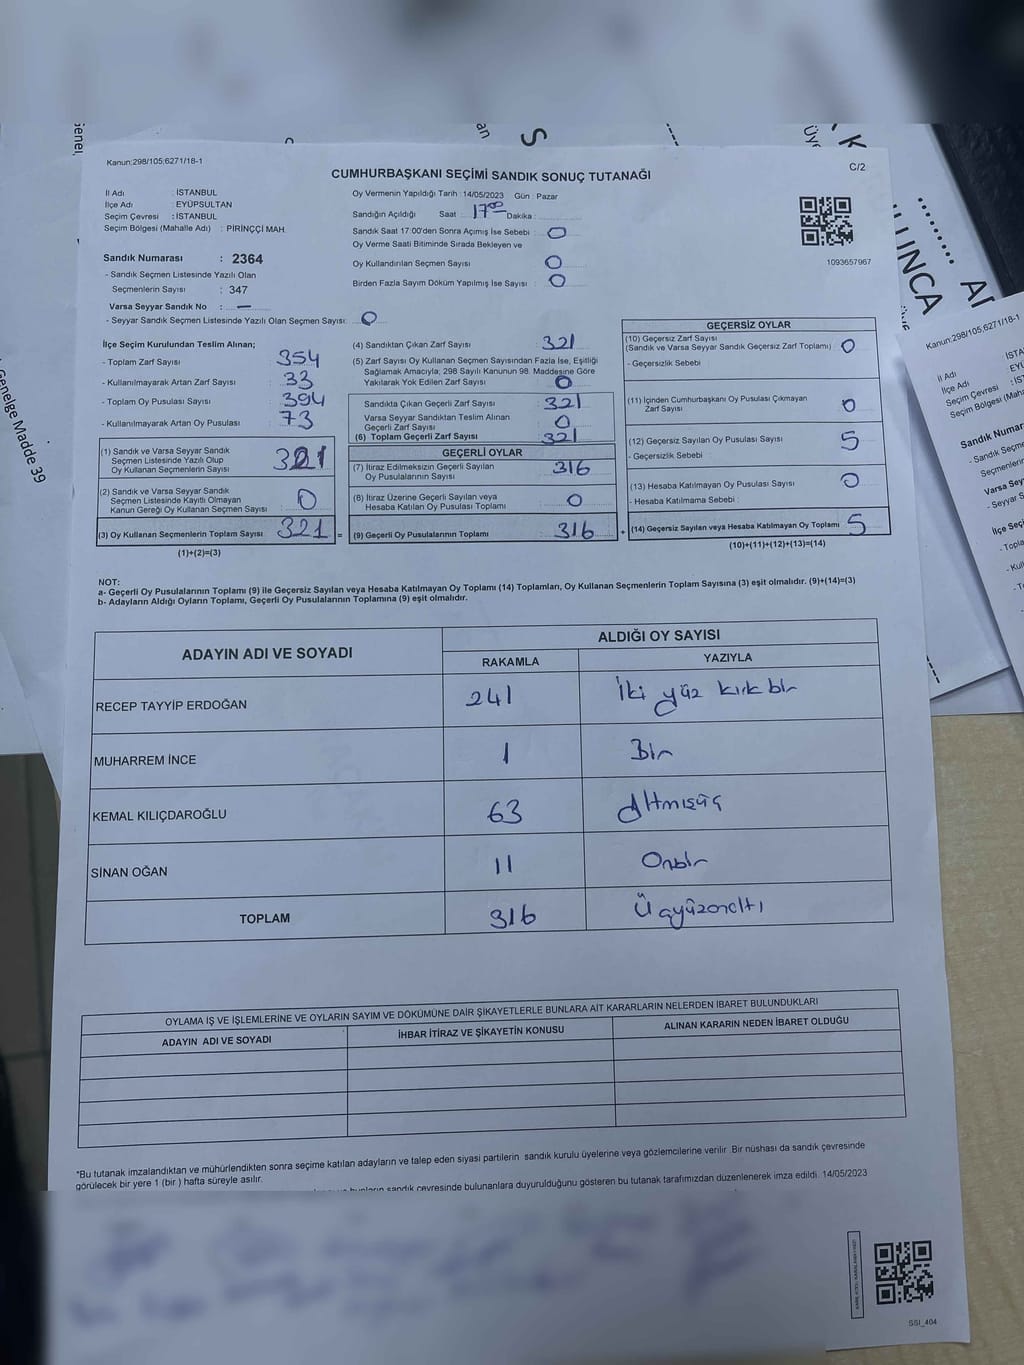 Kanun:298/105;6271/18-1
C/2
CUMHURBAŞKANI SEÇİMİ SANDIK SONUÇ TUTANAĞI
İl Adı : İSTANBUL
İlçe Adı : EYÜPSULTAN
Seçim Çevresi : İSTANBUL
Seçim Bölgesi (Mahalle Adı) : PİRİNÇÇİ MAH.
Sandık Numarası : 2364
- Sandık Seçmen Listesinde Yazılı Olan
Seçmenlerin Sayısı : 347
Varsa Seyyar Sandık No : —
- Seyyar Sandık Seçmen Listesinde Yazılı Olan Seçmen Sayısı: 0
Oy Vermenin Yapıldığı Tarih : 14/05/2023 Gün : Pazar
Sandığın Açıldığı Saat 17:00 Dakika :
Sandık Saat 17:00'den Sonra Açımış İse Sebebi : 0
Oy Verme Saati Bitiminde Sırada Bekleyen ve
Oy Kullandırılan Seçmen Sayısı 0
Birden Fazla Sayım Döküm Yapılmış İse Sayısı : 0
1093657967
İlçe Seçim Kurulundan Teslim Alınan;
- Toplam Zarf Sayısı : 354
- Kullanılmayarak Artan Zarf Sayısı : 33
- Toplam Oy Pusulası Sayısı : 394
- Kullanılmayarak Artan Oy Pusulası : 73
(1) Sandık ve Varsa Seyyar Sandık
Seçmen Listesinde Yazılı Olup
Oy Kullanan Seçmenlerin Sayısı 321
(2) Sandık ve Varsa Seyyar Sandık
Seçmen Listesinde Kayıtlı Olmayan
Kanun Gereği Oy Kullanan Seçmen Sayısı : 0
(3) Oy Kullanan Seçmenlerin Toplam Sayısı : 321
(1)+(2)=(3)
(4) Sandıktan Çıkan Zarf Sayısı : 321
(5) Zarf Sayısı Oy Kullanan Seçmen Sayısından Fazla İse, Eşitliği
Sağlamak Amacıyla, 298 Sayılı Kanunun 98. Maddesine Göre
Yakılarak Yok Edilen Zarf Sayısı : 0
Sandıkta Çıkan Geçerli Zarf Sayısı : 321
Varsa Seyyar Sandıktan Teslim Alınan
Geçerli Zarf Sayısı : 0
(6) Toplam Geçerli Zarf Sayısı : 321
GEÇERLİ OYLAR
(7) İtiraz Edilmeksizin Geçerli Sayılan
Oy Pusulalarının Sayısı : 316
(8) İtiraz Üzerine Geçerli Sayılan veya
Hesaba Katılan Oy Pusulası Toplamı : 0
= (9) Geçerli Oy Pusulalarının Toplamı : 316 +
GEÇERSİZ OYLAR
(10) Geçersiz Zarf Sayısı
(Sandık ve Varsa Seyyar Sandık Geçersiz Zarf Toplamı) : 0
- Geçersizlik Sebebi
(11) İçinden Cumhurbaşkanı Oy Pusulası Çıkmayan
Zarf Sayısı : 0
(12) Geçersiz Sayılan Oy Pusulası Sayısı : 5
- Geçersizlik Sebebi :
(13) Hesaba Katılmayan Oy Pusulası Sayısı : 0
- Hesaba Katılmama Sebebi :
(14) Geçersiz Sayılan veya Hesaba Katılmayan Oy Toplamı : 5
(10)+(11)+(12)+(13)=(14)
NOT:
a- Geçerli Oy Pusulalarının Toplamı (9) ile Geçersiz Sayılan veya Hesaba Katılmayan Oy Toplamı (14) Toplamları, Oy Kullanan Seçmenlerin Toplam Sayısına (3) eşit olmalıdır. (9)+(14)=(3)
b- Adayların Aldığı Oyların Toplamı, Geçerli Oy Pusulalarının Toplamına (9) eşit olmalıdır.
ADAYIN ADI VE SOYADI ALDIĞI OY SAYISI
RAKAMLA YAZIYLA
RECEP TAYYİP ERDOĞAN 241 İki yüz kırk bir
MUHARREM İNCE 1 Bir
KEMAL KILIÇDAROĞLU 63 Altmışüç
SİNAN OĞAN 11 Onbir
TOPLAM 316 Üçyüzonaltı
OYLAMA İŞ VE İŞLEMLERİNE VE OYLARIN SAYIM VE DÖKÜMÜNE DAİR ŞİKAYETLERLE BUNLARA AİT KARARLARIN NELERDEN İBARET BULUNDUKLARI
ADAYIN ADI VE SOYADI İHBAR İTİRAZ VE ŞİKAYETİN KONUSU ALINAN KARARIN NEDEN İBARET OLDUĞU
*Bu tutanak imzalandıktan ve mühürlendikten sonra seçime katılan adayların ve talep eden siyasi partilerin sandık kurulu üyelerine veya gözlemcilerine verilir. Bir nüshası da sandık çevresinde
görülecek bir yere 1 (bir ) hafta süreyle asılır.
bunların sandık çevresinde bulunanlara duyurulduğunu gösteren bu tutanak tarafımızdan düzenlenerek imza edildi. 14/05/2023
SSI_404
Genelge Madde 39
Kanun:298/105;6271/18-1
İl Adı
İlçe Adı
Seçim Çevresi
Seçim Bölgesi (Mah
Sandık Numar